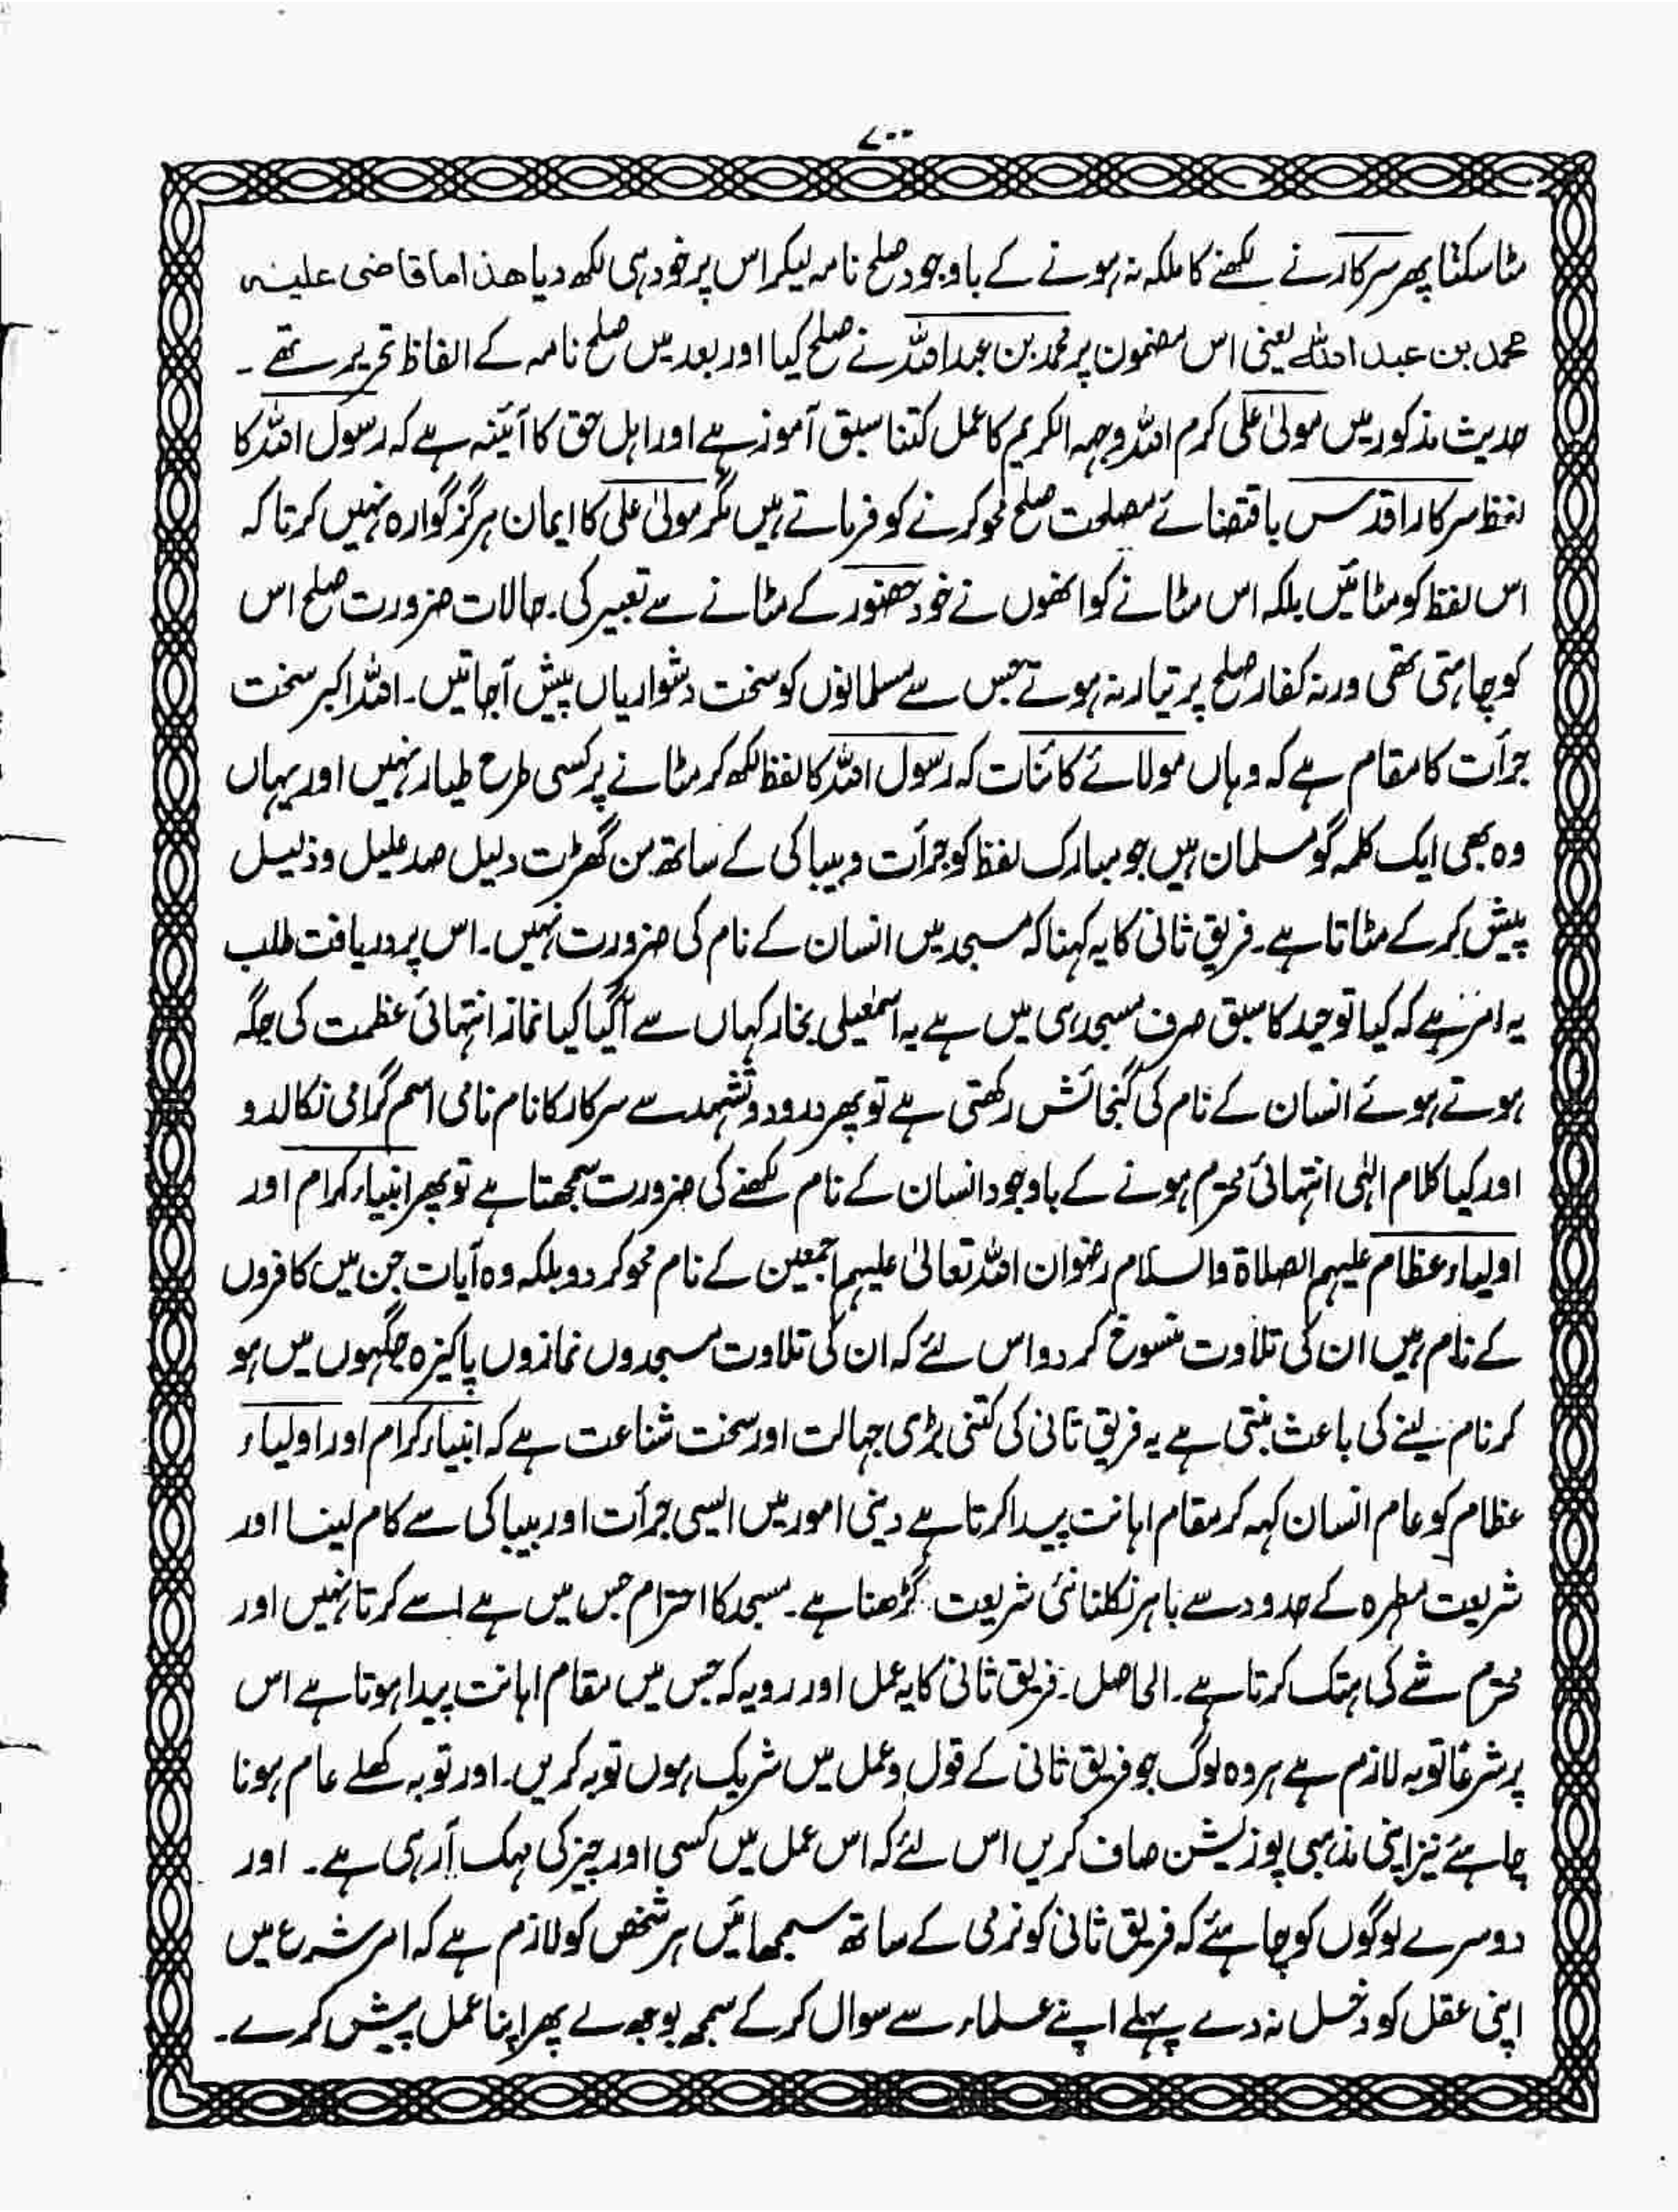 ۷۰۰
مٹا سکتا پھر سرکار نے لکھنے کا ملکہ نہ ہونے کے باوجود صلح نامہ لیکر اس پر خود ہی لکھ دیا ھذا ما قاضی علیہ
محمد بن عبد اللہ یعنی اس مضمون پر محمد بن عبد اللہ نے صلح کیا اور بعد میں صلح نامہ کے الفاظ تحریر تھے ۔
حدیث مذکور میں مولیٰ علی کرم اللہ وجہہ الکریم کا عمل کتنا سبق آموز ہے اور اہل حق کا آئینہ ہے کہ رسول اللہ کا
لفظ سرکار اقدس باقتضائے مصلحت صلح محو کرنے کو فرماتے ہیں مگر مولیٰ علی کا ایمان ہرگز گوارہ نہیں کرتا کہ
اس لفظ کو مٹائیں بلکہ اس مٹانے کو انھوں نے خود حضور کے مٹانے سے تعبیر کی۔ حالات ضرورت صلح اس
کو چاہتی تھی ورنہ کفار صلح پر تیار نہ ہوتے جس سے مسلمانوں کو سخت دشواریاں پیش آجاتیں۔ اللہ اکبر سخت
جرأت کا مقام ہے کہ وہاں مولائے کائنات کہ رسول اللہ کا لفظ لکھ کر مٹانے پر کسی طرح طیار نہیں اور یہاں
وہ بھی ایک کلمہ گو مسلمان ہیں جو مبارک لفظ کو جرأت و بیباکی کے ساتھ من گھڑت دلیل صد علیل و ذلیل
پیش کر کے مٹاتا ہے۔ فریق ثانی کا یہ کہنا کہ مسجد میں انسان کے نام کی ضرورت نہیں۔ اس پر دریافت طلب
یہ امر ہے کہ کیا توحید کا سبق صرف مسجد ہی میں ہے یہ اسمٰعیلی بخار کہاں سے آگیا کیا نماز انتہائی عظمت کی جگہ
ہوتے ہوئے انسان کے نام کی گنجائش رکھتی ہے تو پھر درود و تشہد سے سرکار کا نام نامی اسم گرامی نکالدو
اور کیا کلام الٰہی انتہائی محترم ہونے کے باوجود انسان کے نام لکھنے کی ضرورت سمجھتا ہے تو پھر انبیاء کرام اور
اولیاء عظام علیہم الصلاۃ والسلام رضوان اللہ تعالیٰ علیہم اجمعین کے نام محو کر دو بلکہ وہ آیات جن میں کافروں
کے نام ہیں ان کی تلاوت منسوخ کر دو اس لئے کہ ان کی تلاوت مسجدوں نمازوں پاکیزہ جگہوں میں ہو
کر نام لینے کی باعث بنتی ہے یہ فریق ثانی کی کتنی بڑی جہالت اور سخت شناعت ہے کہ انبیاء کرام اور اولیاء
عظام کو عام انسان کہہ کر مقام اہانت پیدا کرتا ہے دینی امور میں ایسی جرأت اور بیباکی سے کام لینا اور
شریعت مطہرہ کے حدود سے باہر نکلنا نئی شریعت گڑھنا ہے۔ مسجد کا احترام جس میں ہے اسے کرتا نہیں اور
محترم شے کی ہتک کرتا ہے۔ الحاصل۔ فریق ثانی کا یہ عمل اور رویہ کہ جس میں مقام اہانت پیدا ہوتا ہے اس
پر شرعًا توبہ لازم ہے ہر وہ لوگ جو فریق ثانی کے قول و عمل میں شریک ہوں توبہ کریں۔ اور توبہ کھلے عام ہونا
چاہئے نیز اپنی مذہبی پوزیشن صاف کریں اس لئے کہ اس عمل میں کسی اور چیز کی مہک آرہی ہے۔ اور
دوسرے لوگوں کو چاہئے کہ فریق ثانی کو نرمی کے ساتھ سمجھائیں ہر شخص کو لازم ہے کہ امر شرع میں
اپنی عقل کو دخل نہ دے پہلے اپنے علماء سے سوال کر کے سمجھ بوجھ لے پھر اپنا عمل پیش کرے۔